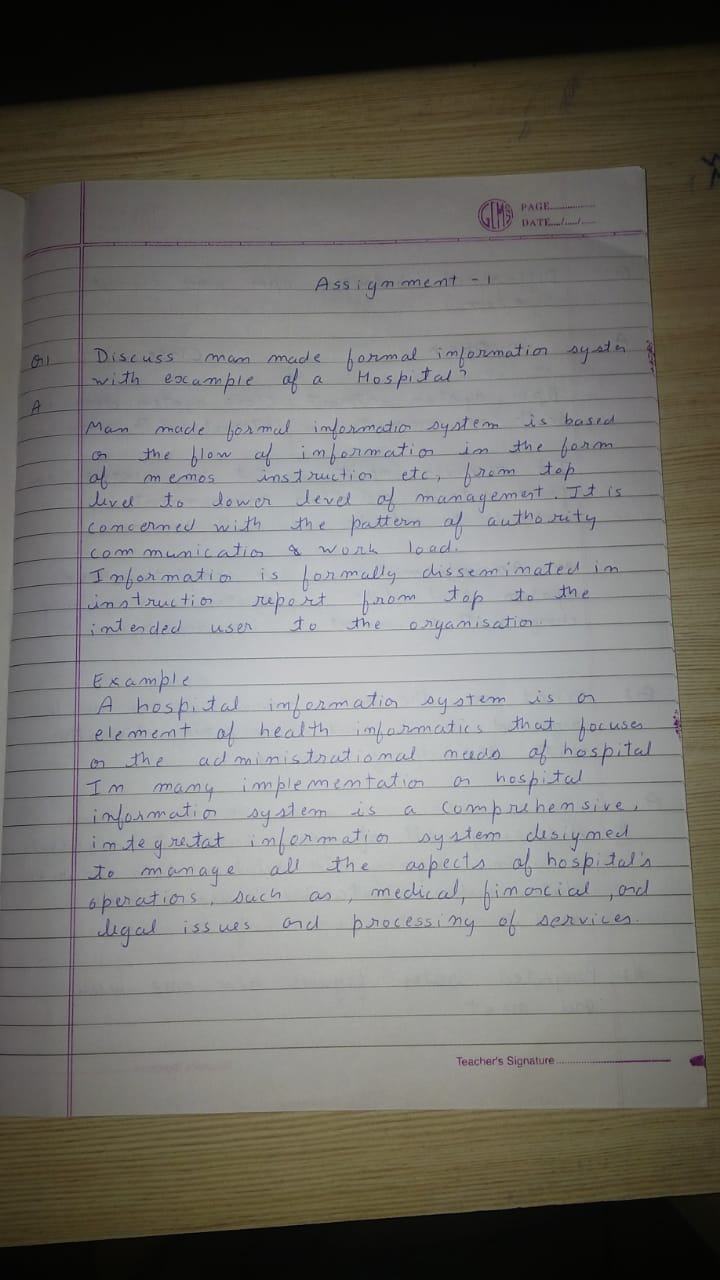 GEMS
PAGE
DATE / /
Assignment - 1
Q1 Discuss man made formal information system
with example of a Hospital?
A
Man made formal information system is based
on the flow of information in the form
of memos instruction etc, from top
level to lower level of management. It is
concerned with the pattern of authority
communication & work load.
Information is formally disseminated in
instruction report from top to the
intended user to the organisation.
Example
A hospital information system is an
element of health informatics that focuses
on the administrational needs of hospital
In many implementation on hospital
information system is a comprehensive,
integretat information system designed
to manage all the aspects of hospital's
operations, such as, medical, financial, and
legal issues and processing of services.
Teacher's Signature